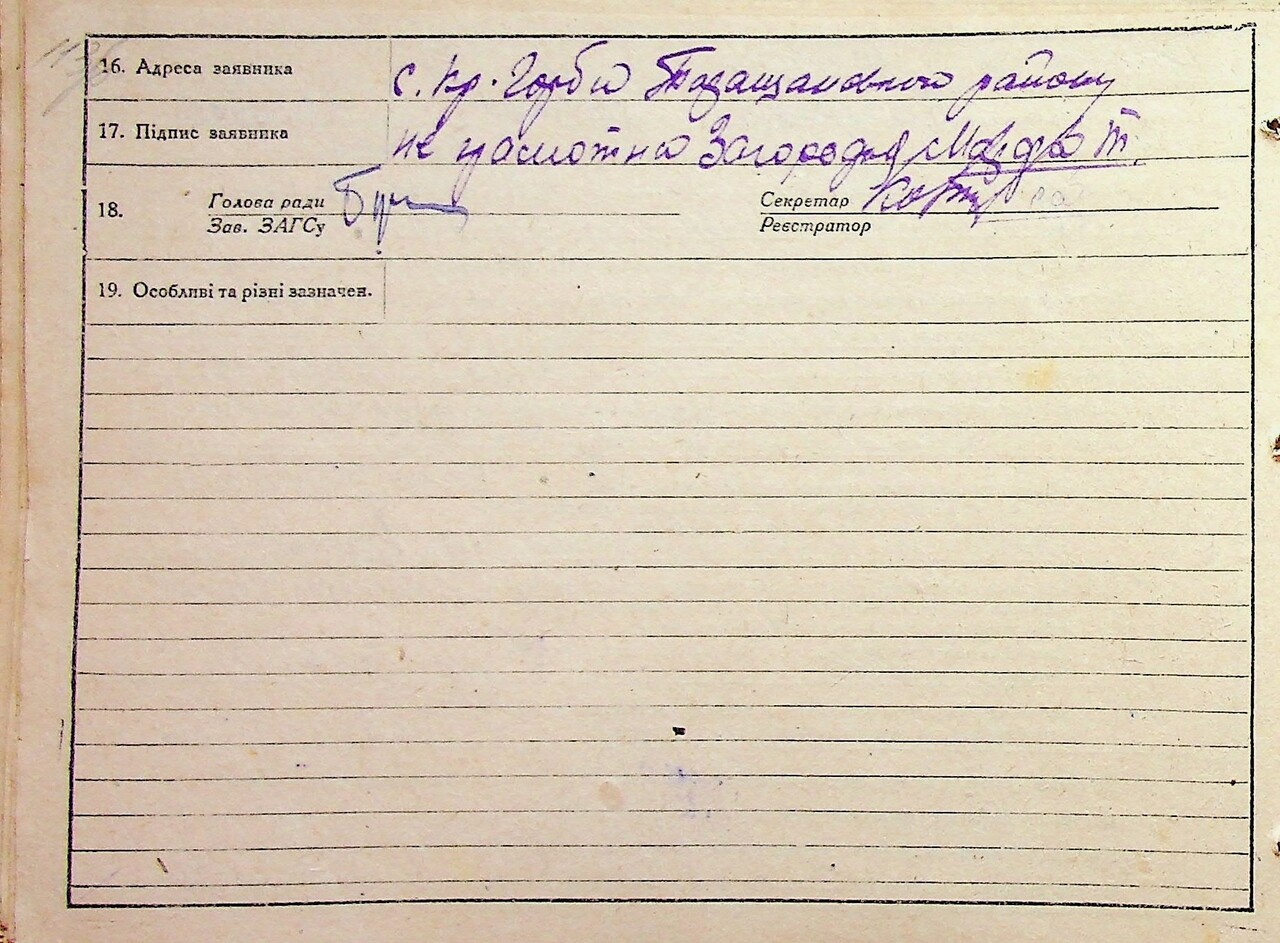 16. Адреса заявника с. Кр. Горби району
17. Підпис заявника не грамотна Загородня Марфа Т.
18. Голова ради Секретар
Зав. ЗАГСу Реєстратор
19. Особливі та різні зазначен.